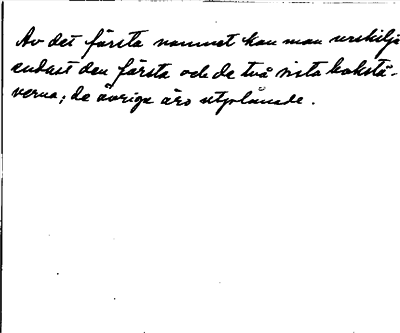 Av det första namnet kan man urskilja
endast den första och de två sista bokstä-
verna; de övriga äro utplånade.